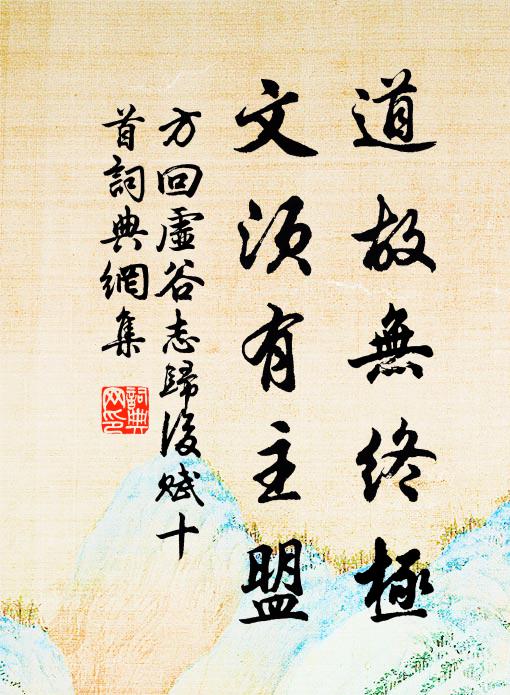 道故無終極
文須有主盟
方回虛谷志歸後賦十
首詞典網集
詞典
网印